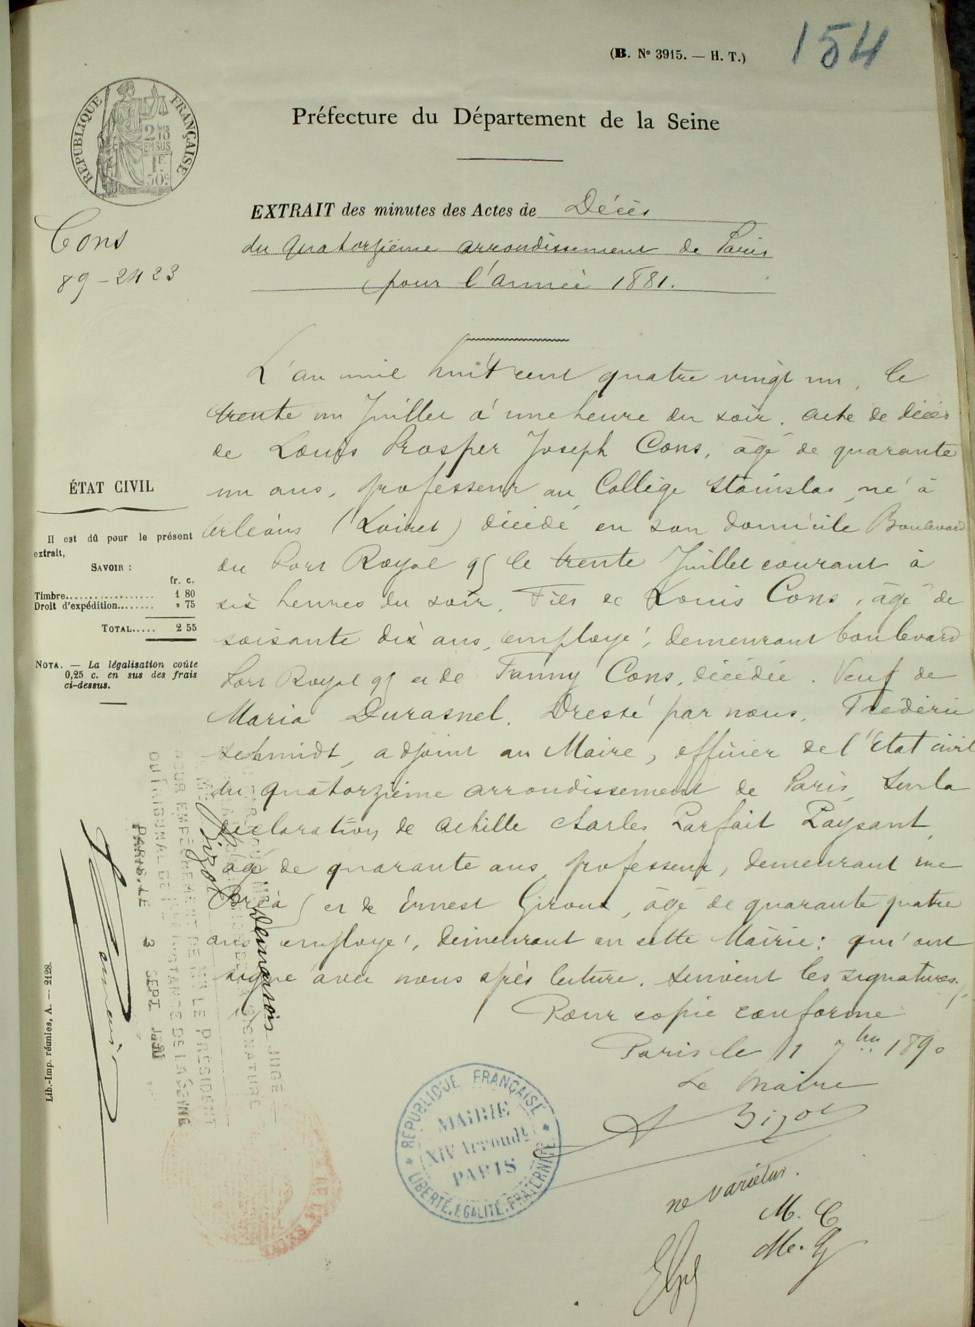 (B. Nº 3915. — H. T.)
154
RÉPUBLIQUE FRANÇAISE
Préfecture du Département de la Seine
EXTRAIT des minutes des Actes de Décès
du quatorzième arrondissement de Paris
pour l'année 1881.
Cons
89 - 2423
L'an mil huit cent quatre vingt un, le
trente un Juillet à une heure du soir. acte de décès
de Louis Prosper Joseph Cons, âgé de quarante
un ans, professeur au Collège Stanislas, né à
Orléans (Loiret) décédé en son domicile Boulevard
du Port Royal 95 le trente Juillet courant à
six heures du soir. Fils de Louis Cons, âgé de
soixante dix ans, employé, demeurant boulevard
Port Royal 95 et de Fanny Cons, décédée. Veuf de
Maria Durasnel. Dressé par nous, Frédéric
Schmidt, adjoint au Maire, officier de l'État civil
du quatorzième arrondissement de Paris, sur la
déclaration de Achille Charles Parfait Paysant,
âgé de quarante ans, professeur, demeurant rue
Bréa, et de Ernest Giroux, âgé de quarante quatre
ans employé, demeurant en cette Mairie; qui ont
signé avec nous après lecture. suivent les signatures.
Pour copie conforme
Paris le 1 7bre 1890
Le Maire
Bizot
ne varietur.
M. C
M. G
ÉTAT CIVIL
Il est dû pour le présent
extrait,
SAVOIR :
fr. c.
Timbre.................. 1 80
Droit d'expédition........ » 75
TOTAL..... 2 55
NOTA. — La légalisation coûte
0,25 c. en sus des frais
ci-dessus.
Lib.-Imp. réunies, A. — 2128.
Bizot
Demaison JUGE
POUR EMPÊCHEMENT DE MR LE PRÉSIDENT
DU TRIBUNAL DE 1RE INSTANCE DE LA SEINE
PARIS, LE 3 SEPT 1890
RÉPUBLIQUE FRANÇAISE
MAIRIE
XIV Arrondt
PARIS
LIBERTÉ, ÉGALITÉ, FRATERNITÉ